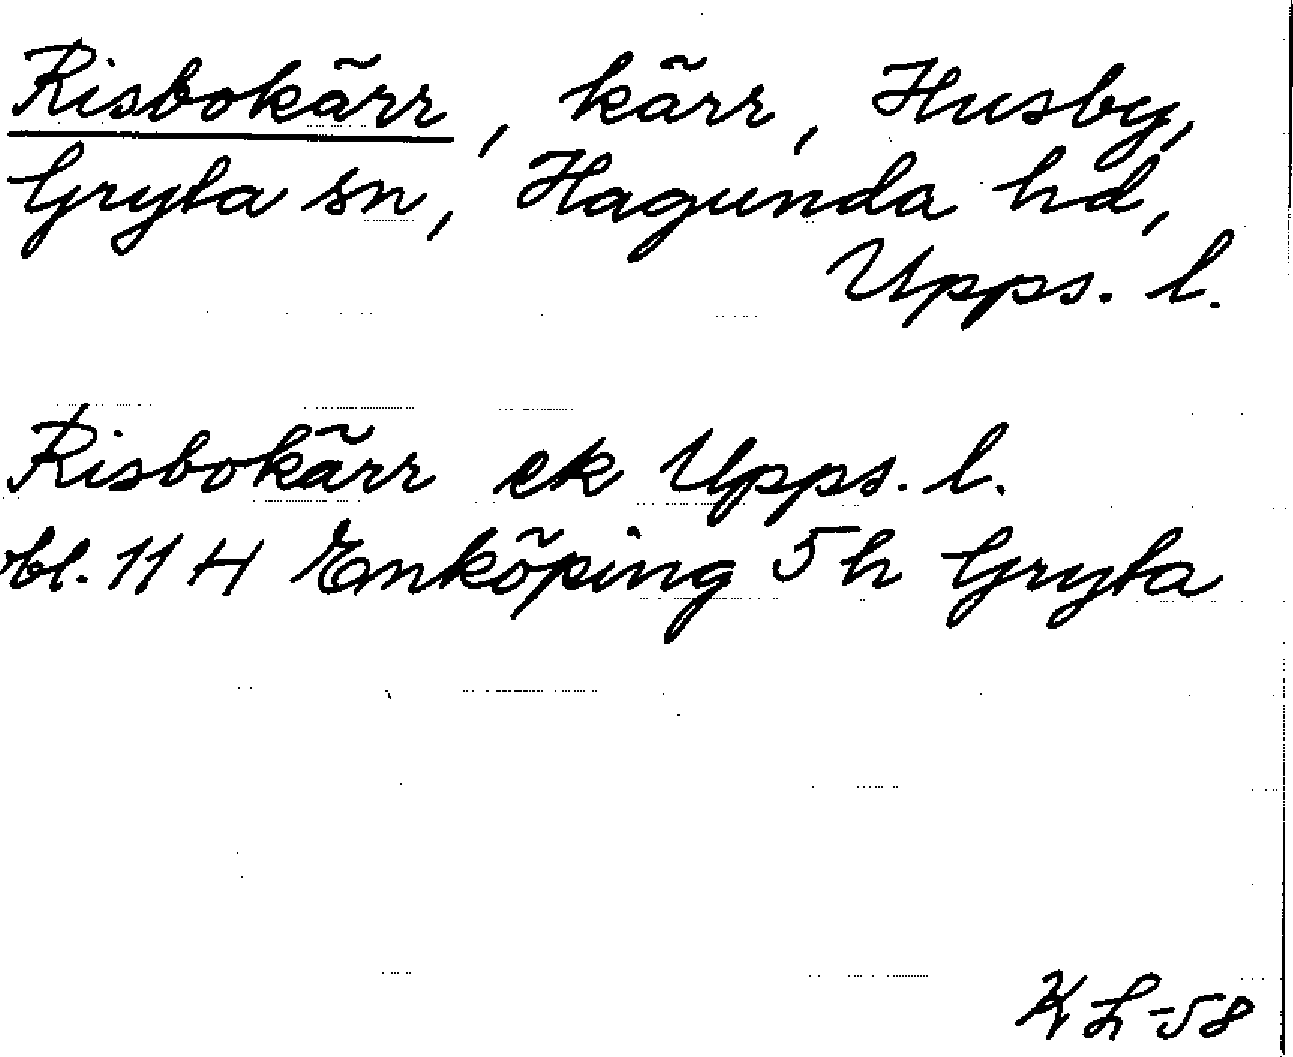 Risbokärr, kärr, Husby,
Gryta sn, Hagunda hd,
Upps. l.
Risbokärr ek Upps. l.
bl. 11 H Enköping 5 h Gryta